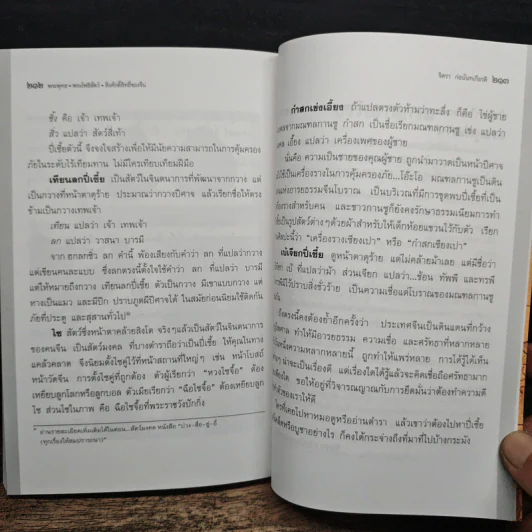 ๒๑๒ พระพุทธ • พระโพธิสัตว์ • สิ่งศักดิ์สิทธิ์ของจีน
ซิ้ง คือ เจ้า เทพเจ้า
สิ่ว แปลว่า สัตว์สี่เท้า
ปี่เซี๊ยตัวนี้ จึงจงใจสร้างเพื่อให้มีนัยความสามารถในการคุ้มครอง
ภัยในระดับไร้เทียมทาน ไม่มีใครเทียบเทียมฝีมือ
เทียนลกปี่เซี๊ย เป็นสัตว์ในจินตนาการที่พัฒนาจากกวาง แต่
เป็นกวางที่หน้าตาดุร้าย ประมาณว่ากวางปีศาจ แล้วเรียกชื่อให้ตรง
ข้ามเป็นกวางเทพเจ้า
เทียน แปลว่า เจ้า เทพเจ้า
ลก แปลว่า วาสนา บารมี
จาก ยกลกชิ่ว ลก คำนี้ พ้องเสียงกับคำว่า ลก ที่แปลว่ากวาง
แต่เขียนคนละแบบ ซึ่งลกตรงนี้ตั้งใจใช้คำว่า ลก ที่แปลว่า บารมี
แต่ให้หมายถึงกวาง เทียนลกปี่เซี๊ย ตัวเป็นกวาง มีเขาแบบกวาง แต่
หางเป็นแมว และมีปีก ปราบภูตผีปีศาจได้ ในสมัยก่อนนิยมใช้ติดกัน
ภัยที่ประตู และสุสานทั่วไป*
ไซ สัตว์ซึ่งหน้าตาคล้ายสิงโต จริงๆแล้วเป็นสัตว์ในจินตนาการ
ของคนจีน เป็นสัตว์มงคล ที่บางตำราถือว่าเป็นปี่เซี๊ย ให้คุณในทาง
แคล้วคลาด จึงนิยมตั้งไซคู่ไว้ที่หน้าสถานที่ใหญ่ๆ เช่น หน้าโบสถ์
หน้าวัดจีน การตั้งไซคู่ที่ถูกต้อง ตัวผู้เรียกว่า "หวงไซจื้อ" ต้อง
เหยียบลูกโลกหรือลูกบอล ตัวเมียเรียกว่า "ฉือไซจื้อ" ต้องเหยียบลูก
ไซ ส่วนไซในภาพ คือ ฉือไซจื้อที่พระราชวังปักกิ่ง
* อ่านรายละเอียดเพิ่มเติมได้ในตอน...สัตว์มงคล หนังสือ
(ทุกเรื่องให้สมปรารถนา)"
จิตรา ก่อนันทเกียรติ ๒๑๓
กำสกเซ่งเอี้ยง ถ้าแปลตรงตัวห้ามว่าทะลึ่ง ก็คือ ไข่ผู้ชาย
จากมณฑลกานซู กำสก เป็นชื่อเรียกมณฑลกานซู เซ่ง แปลว่า
เอี้ยง แปลว่า เครื่องเพศของผู้ชาย
นั่นคือ ความเป็นชายของคุณผู้ชาย ถูกนำมาวาดเป็นหน้าปีศาจ
ใช้เป็นเครื่องรางในการคุ้มครองภัย...โอ๊ะโอ มณฑลกานซูเป็นดิน
แห่งอารยธรรมจีนโบราณ เป็นบริเวณที่มีการขุดพบปี่เซี๊ยที่เป็น
รางสำหรับคน และชาวกานซูก็ยังคงรักษาธรรมเนียมการทำ
เป็นรูปสัตว์ต่างๆด้วยผ้าสำหรับให้เด็กห้อยแขวนไว้กับตัว เรียก
นี้ว่า "เครื่องรางเซียงเปา" หรือ "กำสกเซียงเปา"
ปี่เซี๊ย ดูหน้าตาดุร้าย แต่ไม่คล้ายม้าเลย แต่มีชื่อว่า
เป๊ ที่แปลว่าม้า ส่วนเจียก แปลว่า...ช้อน ทัพพี และทรพี
มีไว้ปราบสิ่งชั่วร้าย เป็นความเชื่อแต่โบราณของมณฑลกานซู
ถึงตรงนี้คงต้องย้ำอีกครั้งว่า ประเทศจีนเป็นดินแดนที่กว้าง
ทำให้มีอารยธรรม ความเชื่อ และศรัทธาที่หลากหลาย
หนึ่งความหลากหลายนี้ ถูกทำให้แพร่หลาย การได้รู้ได้เห็น
น่าจะเป็นเรื่องดี แต่เรื่องใดได้รู้แล้วจะคิดเชื่อถือศรัทธามาก
ขอให้อยู่ที่วิจารณญาณกับการยึดมั่นว่าต้องทำความดี
ของเราให้ดี
ใครที่เคยไปหาหมอดูหรืออ่านตำรา แล้วเขาว่าต้องไปหาปี่เซี๊ย
หรือบูชาอย่างไร ก็คงได้กระจ่างถึงที่มาที่ไปบ้างกระมัง